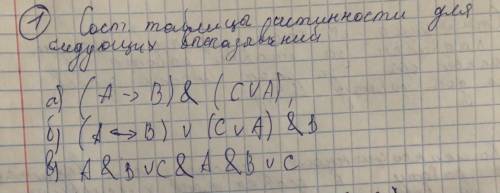 ① Сост. таблицы истинности для
следующих высказываний
а) (A → B) & (C ∨ A)
б) (A ↔ B) ∨ (C ∨ A) & B
в) A & B ∨ C & A & B ∨ C